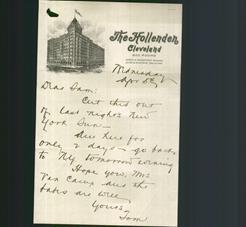 The Hollenden
Cleveland
Wednesday
Dear Sam:
Cut this out
of last night's New
York Sun—
Am here for
only 2 days — go back
to NY tomorrow evening
Hope you, Mrs
Van Camp and the
babes are well
Yours,
Tom